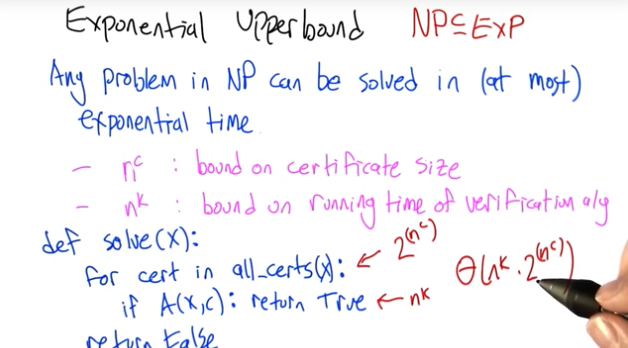 Exponential Upperbound NP ⊆ EXP
Any problem in NP can be solved in (at most)
exponential time
- n^c : bound on certificate size
- n^k : bound on running time of verification alg
def solve(x):
for cert in all_certs(x): ← 2^(n^c)
if A(x,c): return True ← n^k
Θ(n^k · 2^(n^c))
return False